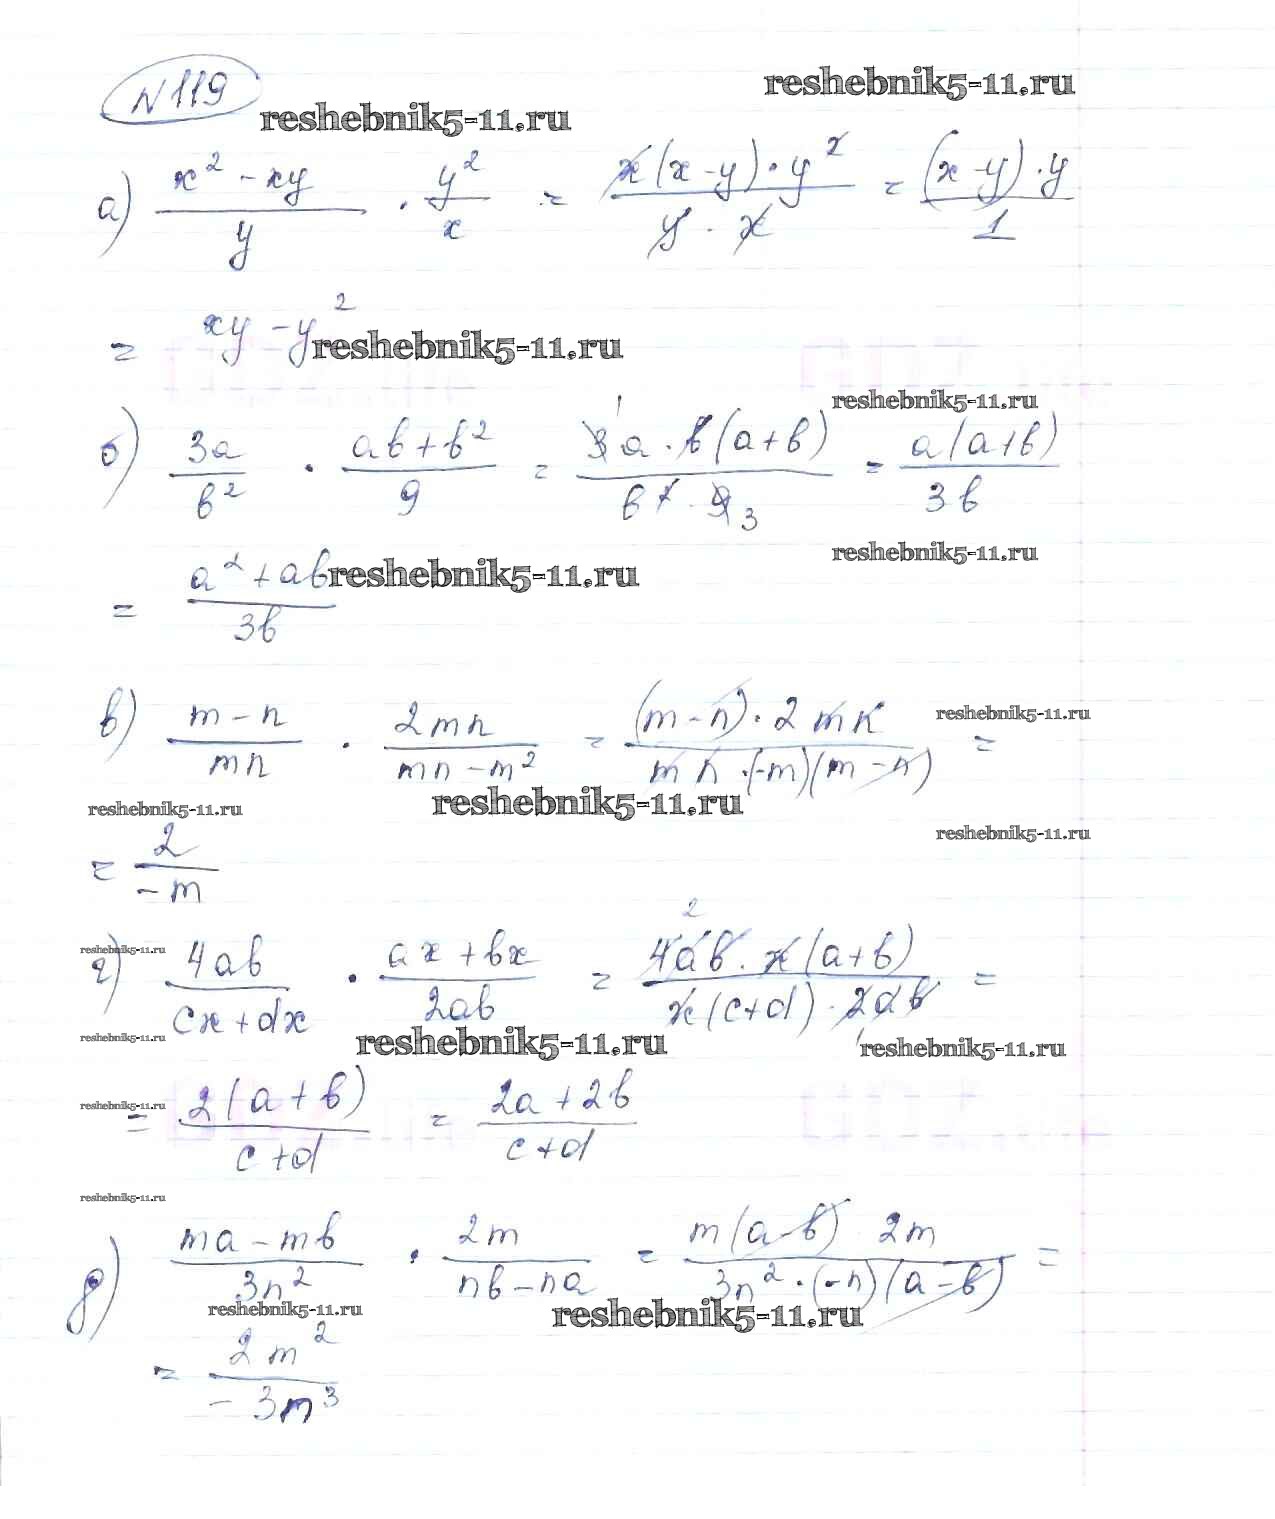 №119
reshebnik5-11.ru
reshebnik5-11.ru
а) (x² - xy)/y · y²/x = (x(x-y)·y²)/(y·x) = ((x-y)·y)/1
= xy - y²
reshebnik5-11.ru
reshebnik5-11.ru
б) 3a/b² · (ab+b²)/9 = (3a·b(a+b))/(b²·9) 1 3 = a(a+b)/3b
reshebnik5-11.ru
= (a²+ab)/3b
reshebnik5-11.ru
в) (m-n)/mn · 2mn/(mn-m²) = ((m-n)·2mn)/(mn·(-m)(m-n)) =
reshebnik5-11.ru
reshebnik5-11.ru
reshebnik5-11.ru
reshebnik5-11.ru
= 2/-m
reshebnik5-11.ru
г) 4ab/(cx+dx) · (ax+bx)/2ab = (4ab·x(a+b))/(x(c+d)·2ab) 2 1 =
reshebnik5-11.ru
reshebnik5-11.ru
reshebnik5-11.ru
reshebnik5-11.ru
= 2(a+b)/(c+d) = (2a+2b)/(c+d)
reshebnik5-11.ru
д) (ma-mb)/3n² · 2m/(nb-na) = (m(a-b) 2m)/(3n²·(-n)(a-b)) =
reshebnik5-11.ru
reshebnik5-11.ru
= 2m²/-3m³